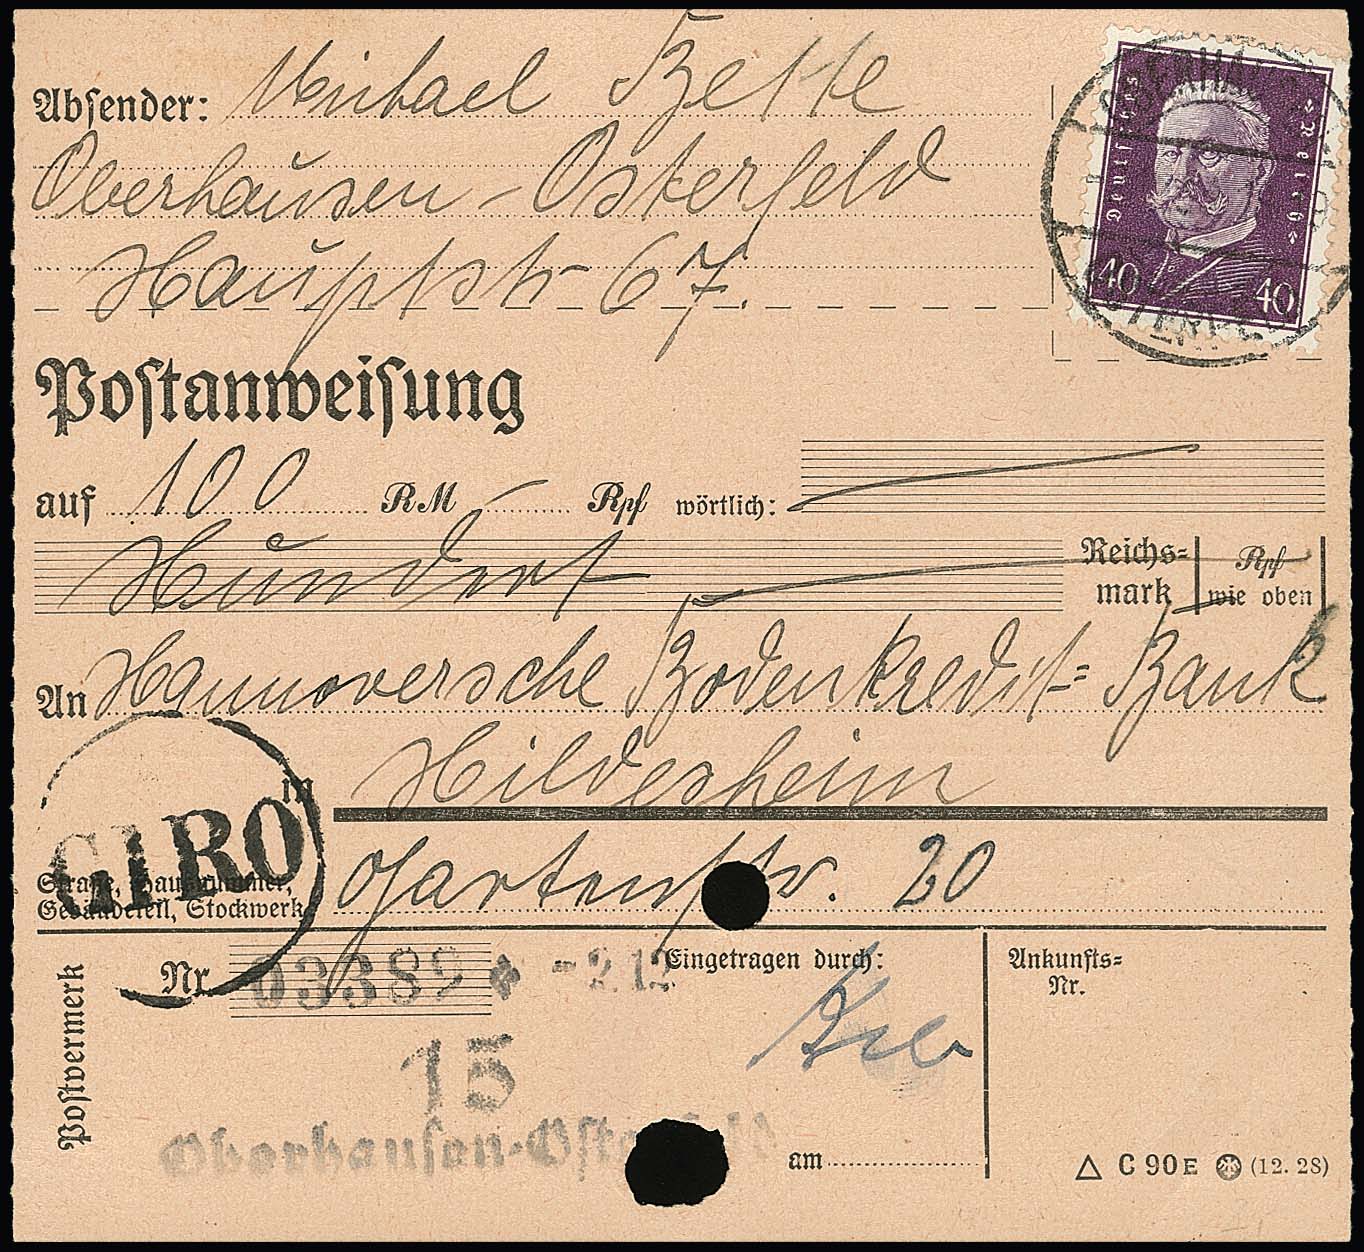 Absender: Michael Bette
Oberhausen-Osterfeld
Hauptstr 67.
Deutsches Reich
40 40
Postanweisung
auf 100 RM — Rpf wörtlich:
Hundert Reichs=mark Rpf wie oben
An Hannoversche Bodenkredit=Bank
in Hildesheim
GIRO
Straße, Hausnummer,
Gebäudeteil, Stockwerk
Gartenstr. 20
Postvermerk
Nr. 03389 * -2.12
Eingetragen durch:
Ankunfts=
Nr.
15
Oberhausen-Osterfeld
am
C 90 E (12. 28)